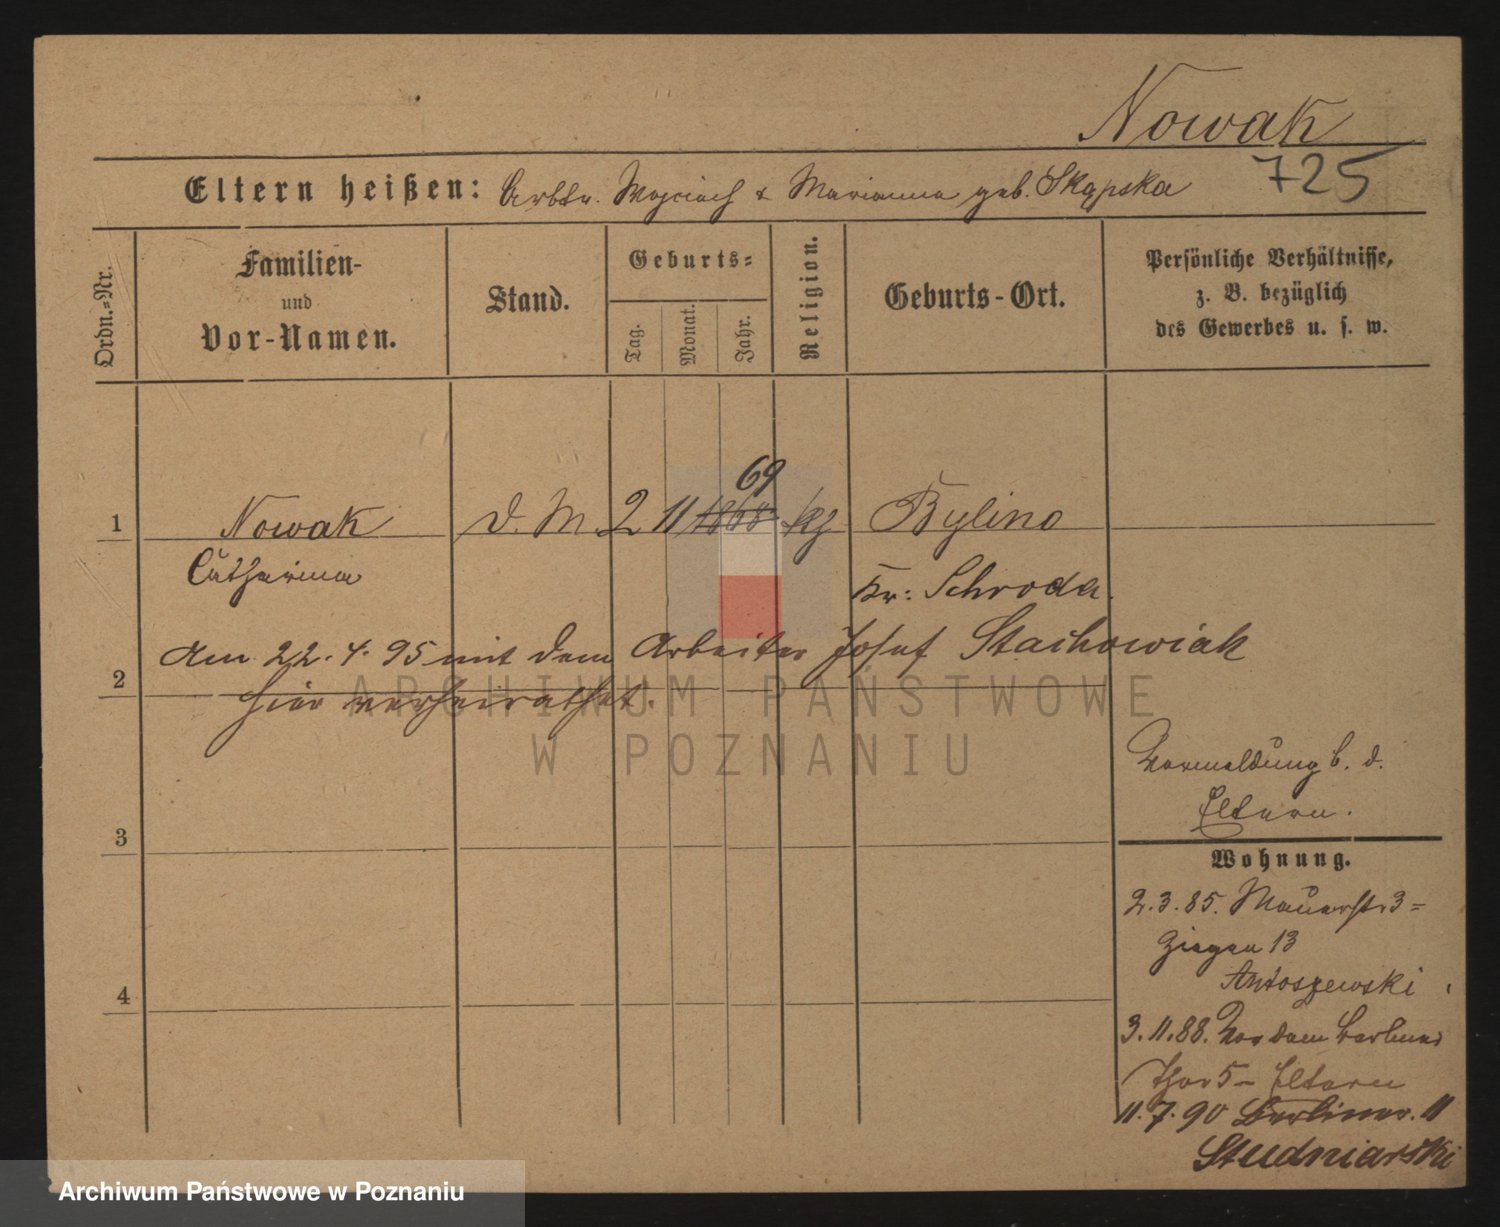 Nowak
725
Eltern heißen: Arbtr. Wojciech & Marianna geb. Skąpska
Ordn.-Nr.
Familien-
und
Vor-Namen.
Stand.
Geburts-
Tag.
Monat.
Jahr.
Religion.
Geburts-Ort.
Persönliche Verhältnisse,
z. B. bezüglich
des Gewerbes u. s. w.
69
1 Nowak D. M. 2 11 1868 kg Bylino
Catharina Kr: Schroda.
Am 22.4.95 mit dem Arbeiter Josef Stachowiak
2
hier verheirathet.
ARCHIWUM PAŃSTWOWE
W POZNANIU
Vormeldung b. d.
Eltern.
3
Wohnung.
2.3.85. Mauerstr 3 =
Ziegen 13
Antoszewski
4
3.11.88. Vor dem Berliner
Thor 5 - Eltern
11.7.90 Berliner. 11
Studniarski
Archiwum Państwowe w Poznaniu